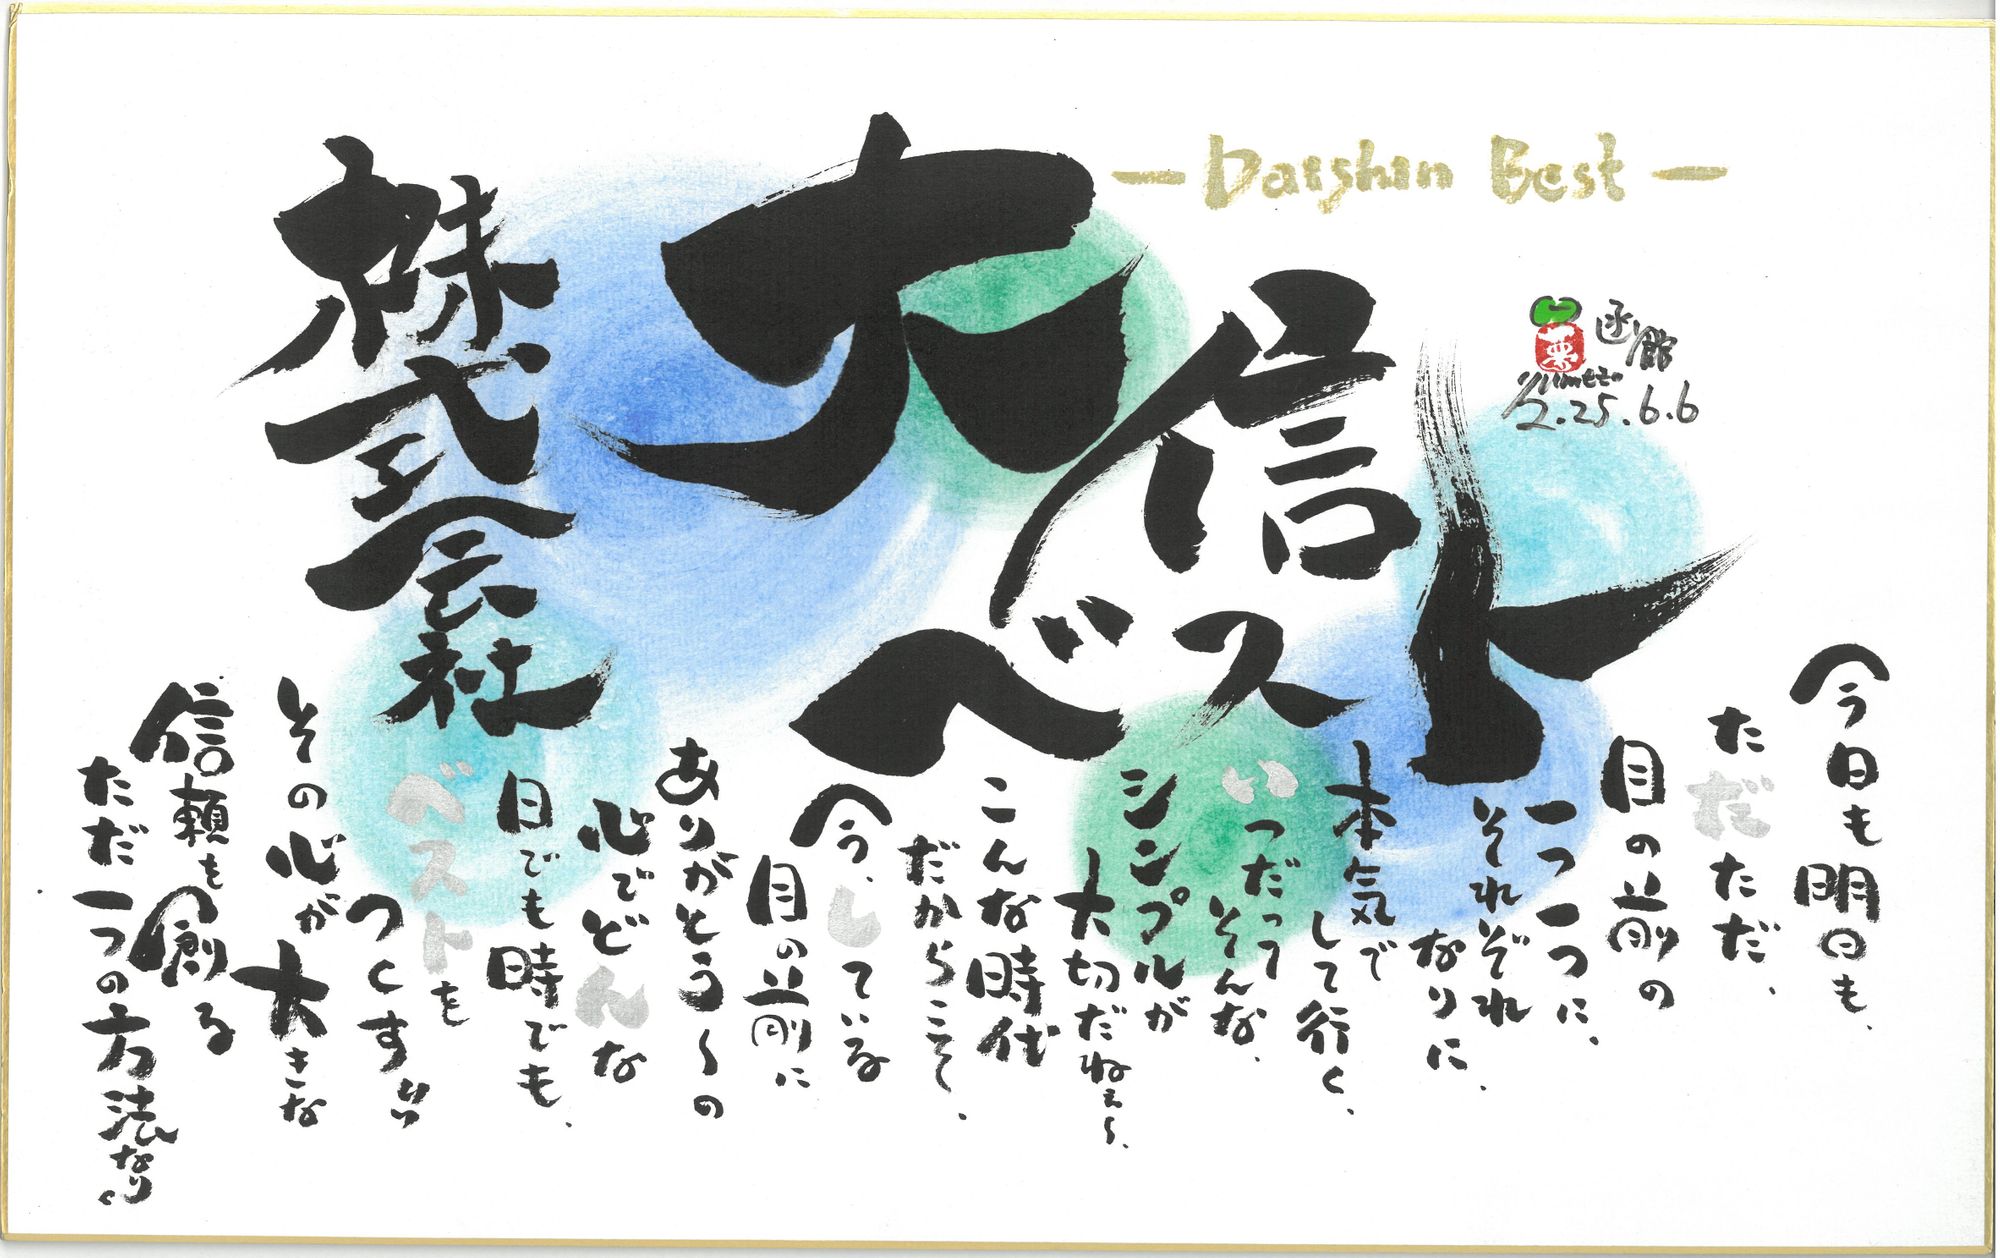 株式会社
大信
ベスト
— Daishin Best —
函館
2.25.6.6
今日も明日も、
ただただ、
目の前の
一つ一つに、
それぞれ
なりに、
本気で
して行く、
いつだって
そんな、
シンプルが
大切だねぇ〜、
こんな時代
だからこそ、
今、している
目の前に
ありがとう〜の
心でどんな
日でも時でも、
ベストを
つくす!!
その心が大きな
信頼を創る
ただ一つの方法なり。